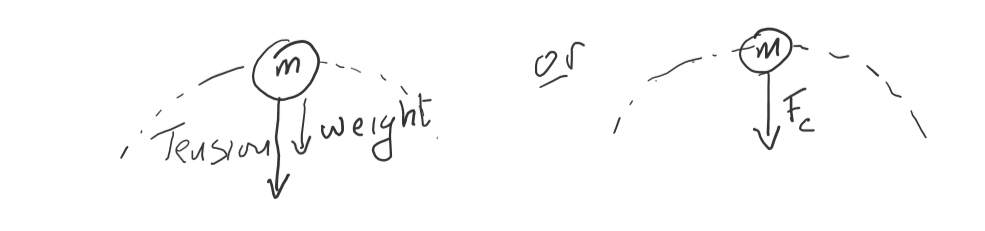 m
Tension
weight
or
m
Fc